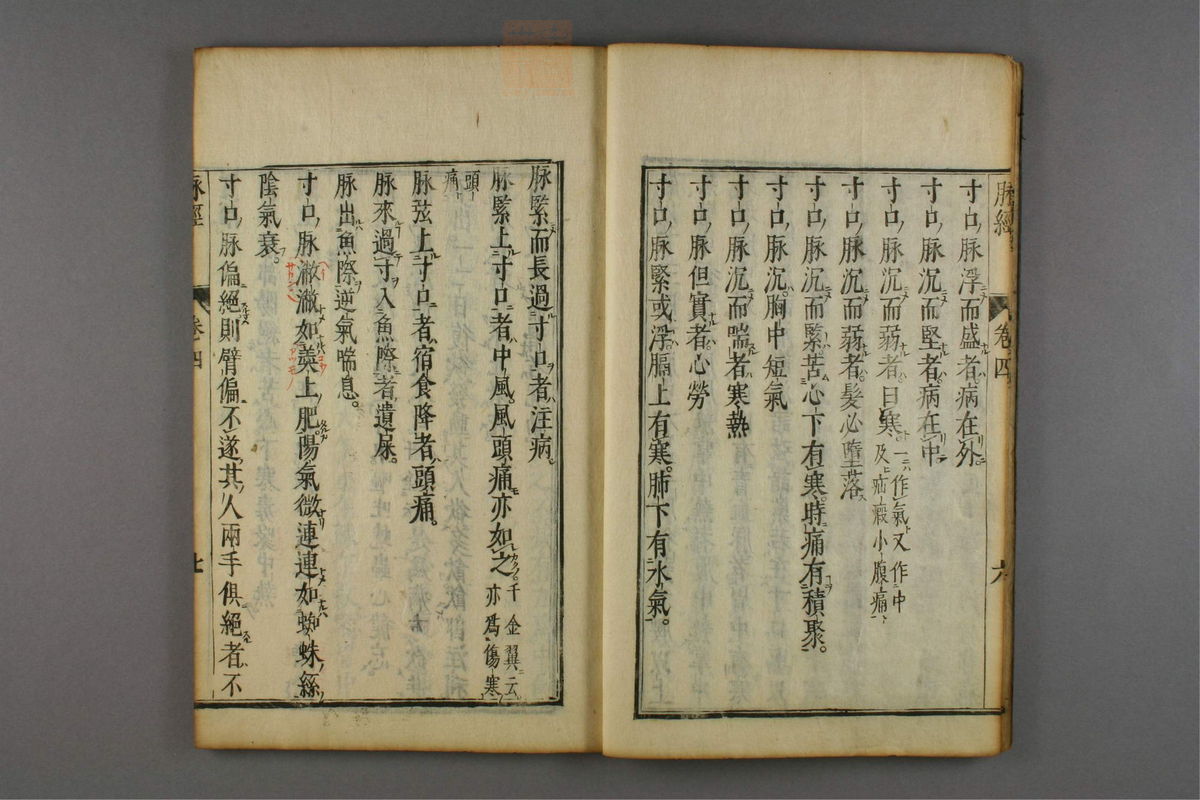 脉經 卷四 六
寸口脉浮而盛者病在外
寸口脉沉而堅者病在中
寸口脉沉而弱者曰寒一作氣又作中及疝瘕小腹痛
寸口脉沉而弱者髮必墮落
寸口脉沉而緊苦心下有寒時痛有積聚
寸口脉沉胸中短氣
寸口脉沉而喘者寒熱
寸口脉但實者心勞
寸口脉緊或浮膈上有寒肺下有水氣
脉緊而長過寸口者注病
脉緊上寸口者中風風頭痛亦如之千金翼云亦爲傷寒
頭痛
脉弦上寸口者宿食降者頭痛
脉來過寸入魚際者遺尿
脉出魚際逆氣喘息
寸口脉潎潎如羮上肥陽氣微連連如蜘蛛絲
陰氣衰
寸口脉偏絕則臂偏不遂其人兩手俱絕者不
脉經 卷四 七